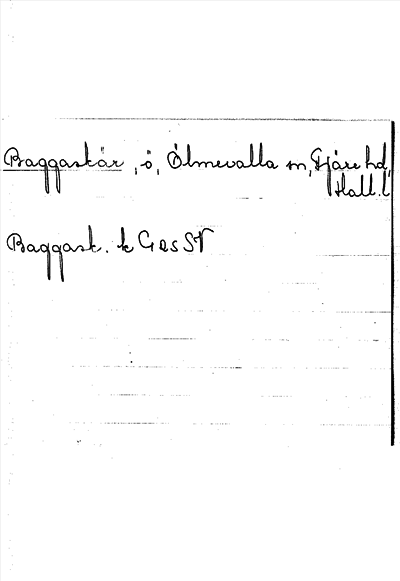 Baggaskär, ö, Ölmevalla sn, Fjäre hd,
Hall. l
Baggask. k GesSV